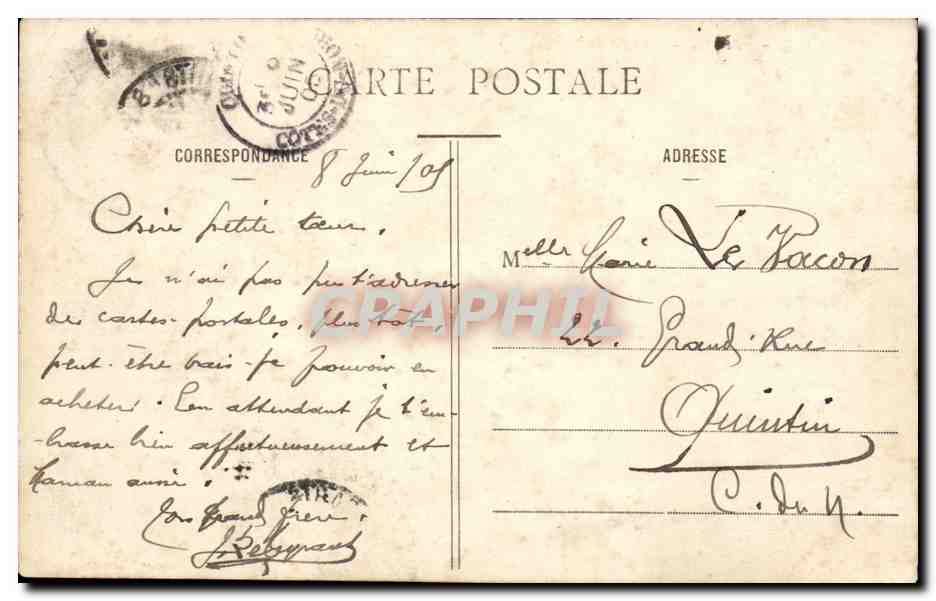 CARTE POSTALE
CORRESPONDANCE
8 Juin /05
Chère petite sœur,
Je n'ai pas pu t'adresser
des cartes-postales, plus tôt,
peut-être vais-je pouvoir en
acheter. En attendant je t'em-
-brasse bien affectueusement et
Maman aussi.
Ton Grand frère.
ADRESSE
Melle Marie Le Vacon
22. Grand' Rue
Quintin
C. du N.
JUIN
CÔTES-
GRAPHIL